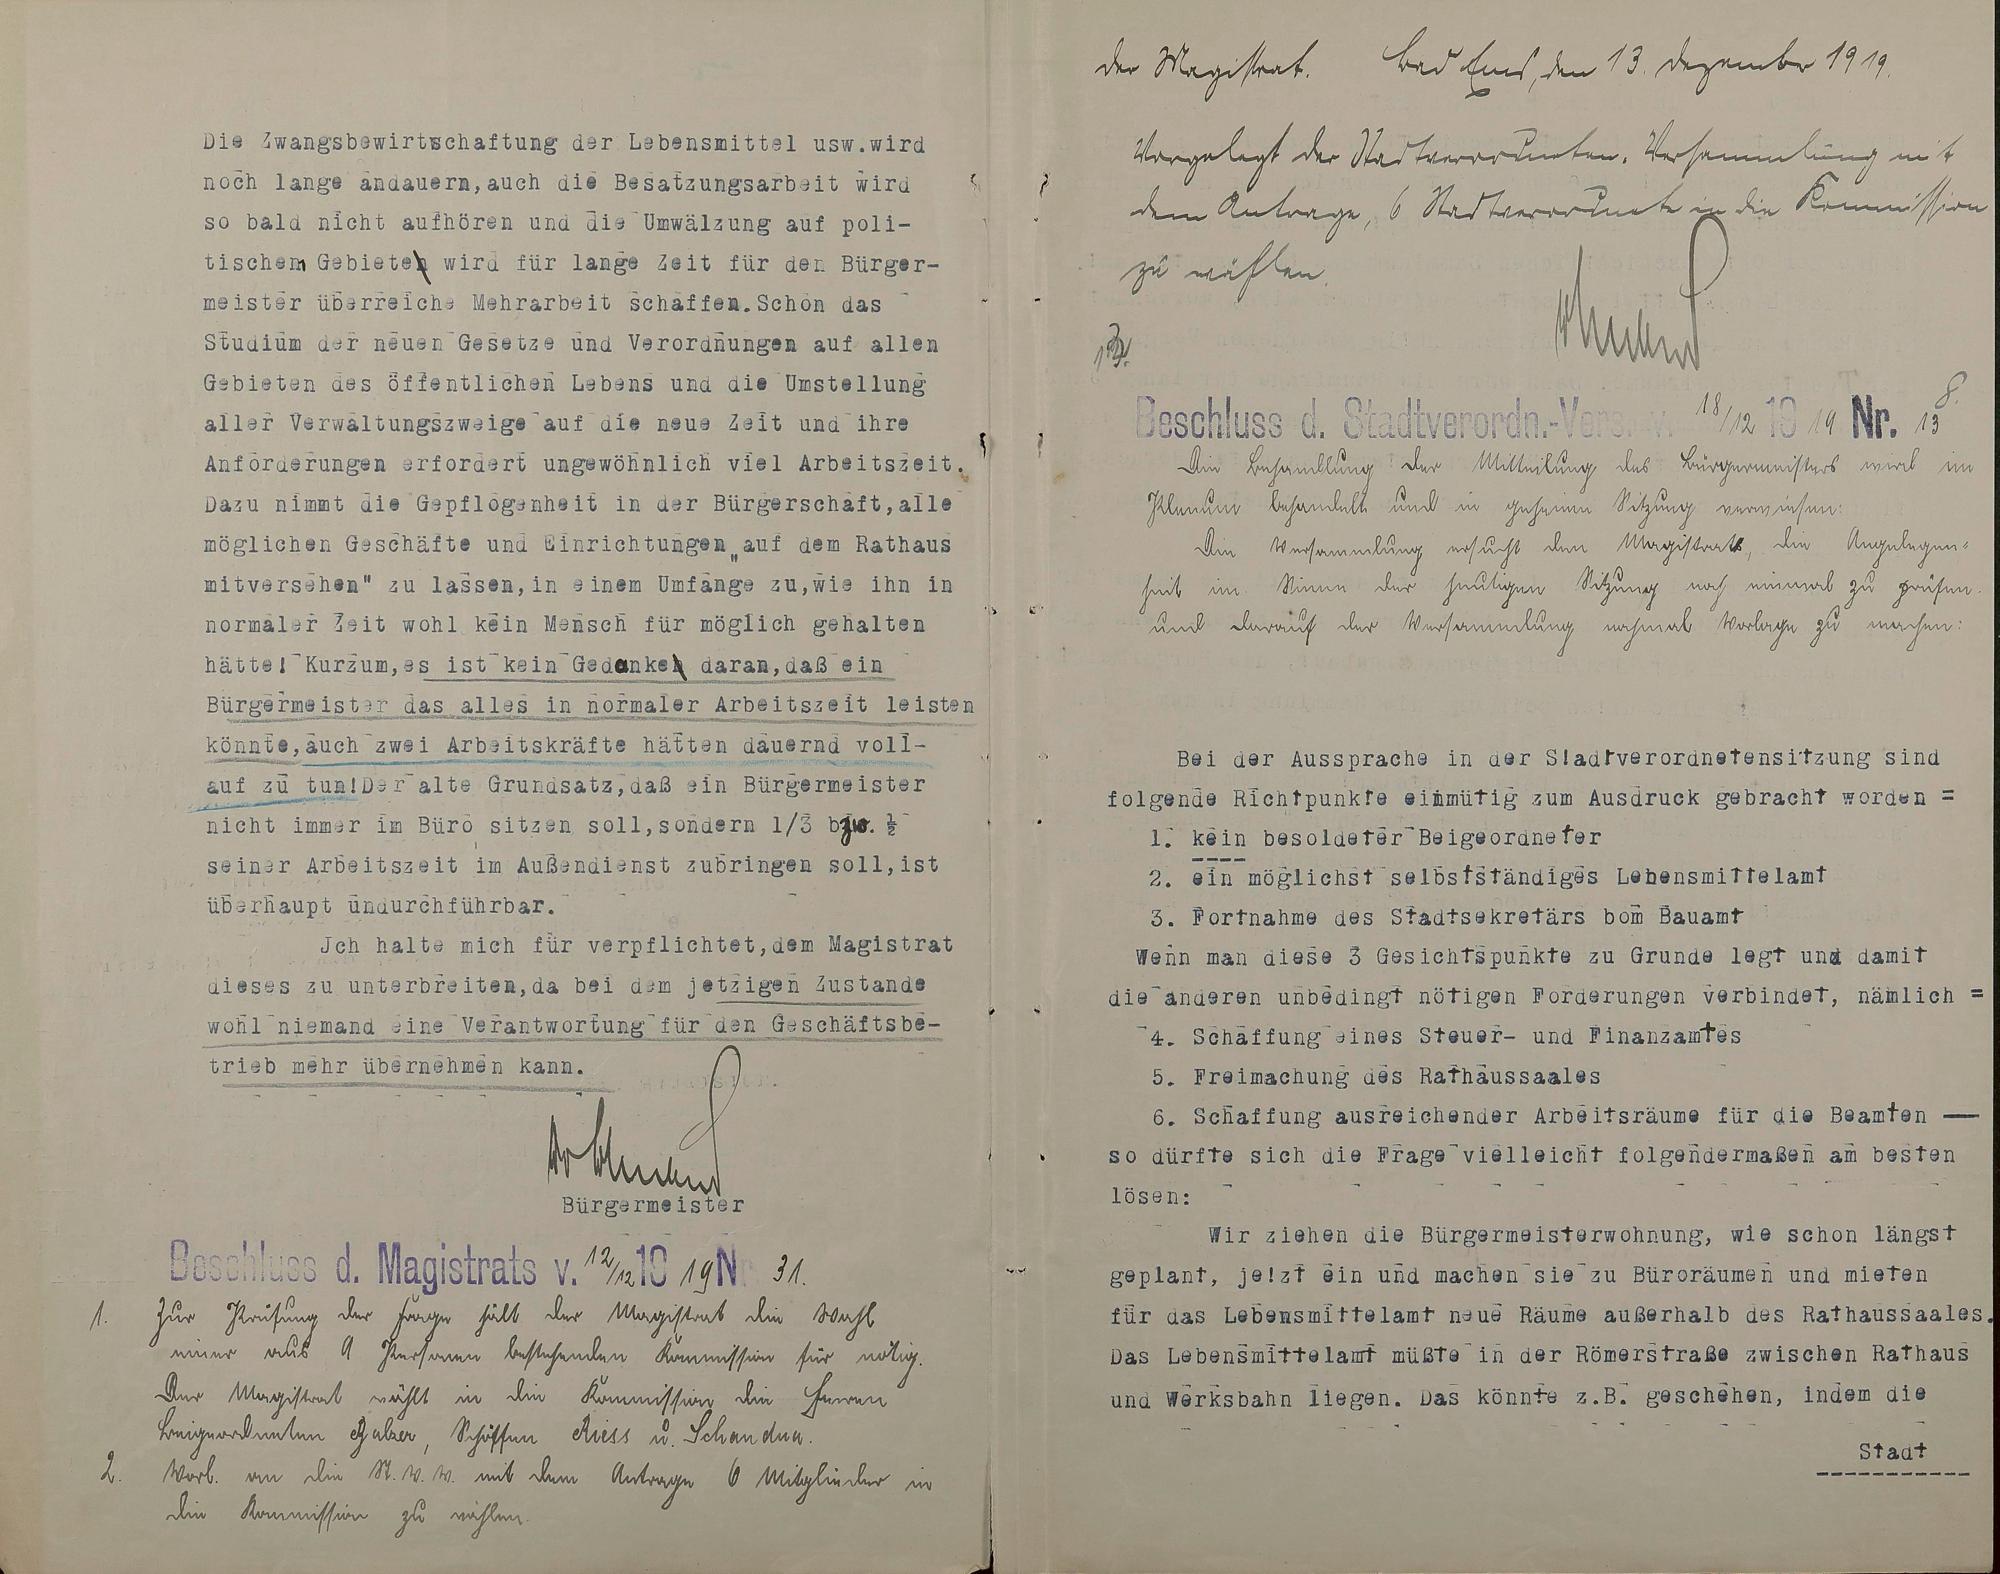 Die Zwangsbewirtschaftung der Lebensmittel usw.wird
noch lange andauern,auch die Besatzungsarbeit wird
so bald nicht aufhören und die Umwälzung auf poli-
tischem Gebiete wird für lange Zeit für den Bürger-
meister überreiche Mehrarbeit schaffen.Schon das
Studium der neuen Gesetze und Verordnungen auf allen
Gebieten des öffentlichen Lebens und die Umstellung
aller Verwaltungszweige auf die neue Zeit und ihre
Anforderungen erfordert ungewöhnlich viel Arbeitszeit.
Dazu nimmt die Gepflogenheit in der Bürgerschaft,alle
möglichen Geschäfte und Einrichtungen „auf dem Rathaus
mitversehen" zu lassen,in einem Umfange zu,wie ihn in
normaler Zeit wohl kein Mensch für möglich gehalten
hätte! Kurzum,es ist kein Gedanke daran,daß ein
Bürgermeister das alles in normaler Arbeitszeit leisten
könnte,auch zwei Arbeitskräfte hätten dauernd voll-
auf zu tun!Der alte Grundsatz,daß ein Bürgermeister
nicht immer im Büro sitzen soll,sondern 1/3 bzw. ½
seiner Arbeitszeit im Außendienst zubringen soll,ist
überhaupt undurchführbar.
Jch halte mich für verpflichtet,dem Magistrat
dieses zu unterbreiten,da bei dem jetzigen Zustande
wohl niemand eine Verantwortung für den Geschäftsbe-
trieb mehr übernehmen kann.
Bürgermeister
Beschluss d. Magistrats v. 12/12 19 19 Nr 31.
1. Zur Prüfung der Frage hält der Magistrat die Wahl
einer aus 9 Personen bestehenden Kommission für nötig.
Der Magistrat wählt in die Kommission die Herren
Beigeordneten Balzer, Schöffen Riess u. Schandua.
2. Vorl. an die St. V. V. mit dem Antrage 6 Mitglieder in
die Kommission zu wählen.
Der Magistrat. Bad Ems, den 13. Dezember 1919.
Vorgelegt der Stadtverordneten-Versammlung mit
dem Antrage, 6 Stadtverordnete in die Kommission
zu wählen.
Beschluss d. Stadtverordn.-Vers. v. 18/12 19 19 Nr. 13
8.
Die Behandlung der Mitteilung des Bürgermeisters wird im
Plenum behandelt und in geheime Sitzung verwiesen:
Die Versammlung ersucht den Magistrat, die Angelegen=
heit im Sinne der heutigen Sitzung noch einmal zu prüfen
und darauf der Versammlung nochmal Vorlage zu machen:
Bei der Aussprache in der Stadtverordnetensitzung sind
folgende Richtpunkte einmütig zum Ausdruck gebracht worden =
1. kein besoldeter Beigeordneter
2. ein möglichst selbstständiges Lebensmittelamt
3. Fortnahme des Stadtsekretärs bom Bauamt
Wenn man diese 3 Gesichtspunkte zu Grunde legt und damit
die anderen unbedingt nötigen Forderungen verbindet, nämlich =
4. Schaffung eines Steuer- und Finanzamtes
5. Freimachung des Rathaussaales
6. Schaffung ausreichender Arbeitsräume für die Beamten —
so dürfte sich die Frage vielleicht folgendermaßen am besten
lösen:
Wir ziehen die Bürgermeisterwohnung, wie schon längst
geplant, jetzt ein und machen sie zu Büroräumen und mieten
für das Lebensmittelamt neue Räume außerhalb des Rathaussaales.
Das Lebensmittelamt müßte in der Römerstraße zwischen Rathaus
und Werksbahn liegen. Das könnte z.B. geschehen, indem die
Stadt